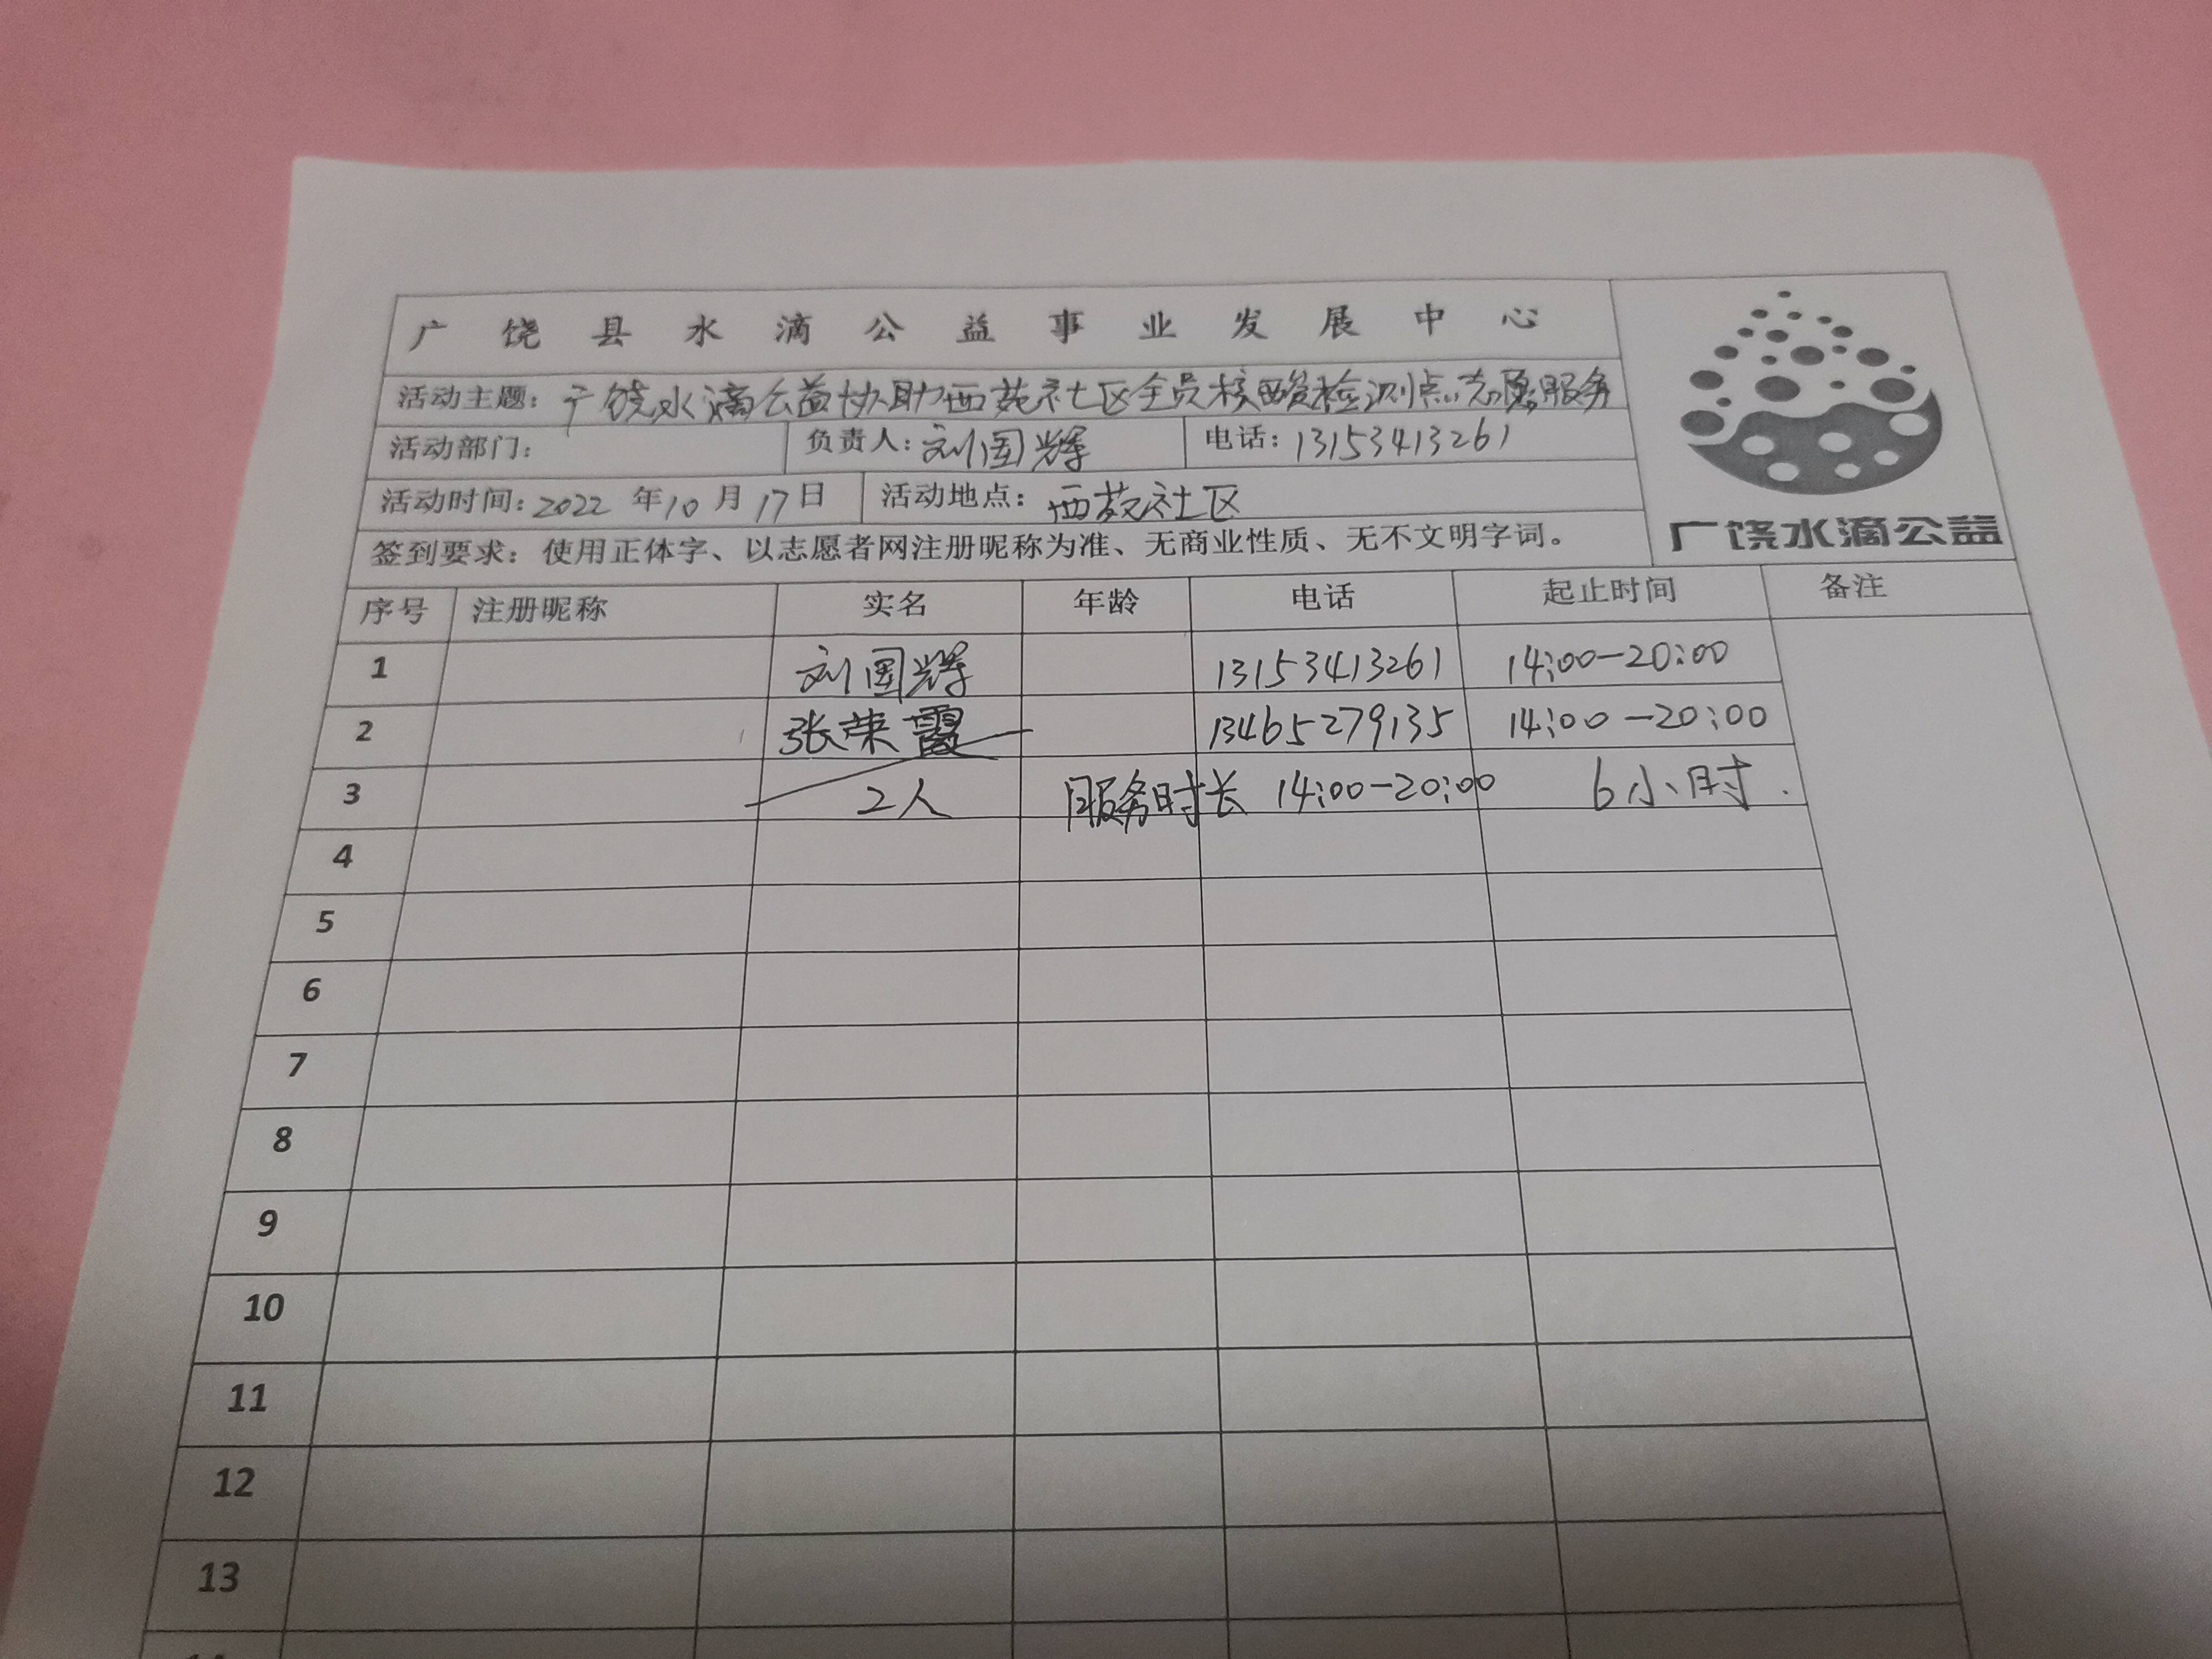 广饶县水滴公益事业发展中心
活动主题：广饶水滴公益协助西苑社区全员核酸检测点志愿服务
活动部门： 负责人：刘国辉 电话：13153413261
活动时间：2022 年10 月17日 活动地点：西苑社区
广饶水滴公益
签到要求：使用正体字、以志愿者网注册昵称为准、无商业性质、无不文明字词。
序号 注册昵称 实名 年龄 电话 起止时间 备注
1 刘国辉 13153413261 14:00-20:00
2 张荣霞 13465279135 14:00-20:00
3 2人 服务时长 14:00-20:00 6小时.
4
5
6
7
8
9
10
11
12
13